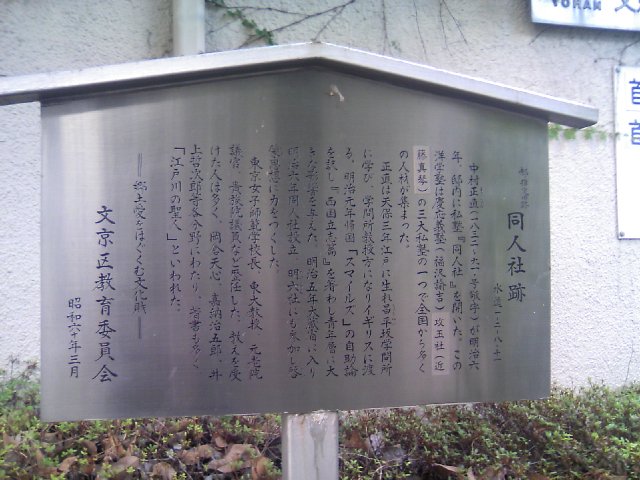 都指定旧跡
同人社跡
水道一ー八ー十一
中村正直(一八三二ー九一・号敬宇)が明治六
年、邸内に私塾『同人社』を開いた。この
洋学塾は慶応義塾(福沢諭吉)攻玉社(近
藤真琴)の三大私塾の一つで全国から多く
の人材が集まった。
正直は天保三年江戸に生れ昌平坂学問所
に学び、学問所教授方になりイギリスに渡
る。明治元年帰国「スマイルズ」の自助論
を訳し『西国立志篇』を著わし青年層に大
きな影響を与えた。明治五年大蔵省に入り
明治六年同人社設立、明六社にも参加し啓
に力をつくした。
東京女子師範学校長、東大教授、元老院
議官、貴族院議員などを歴任した。教えを受
けた人は多く、岡倉天心、嘉納治五郎、井
上哲次郎等各分野にわたり、著書も多く
「江戸川の聖人」といわれた。
郷土愛をはぐくむ文化財
文京区教育委員会
昭和六十年三月
YOHAN
首
首